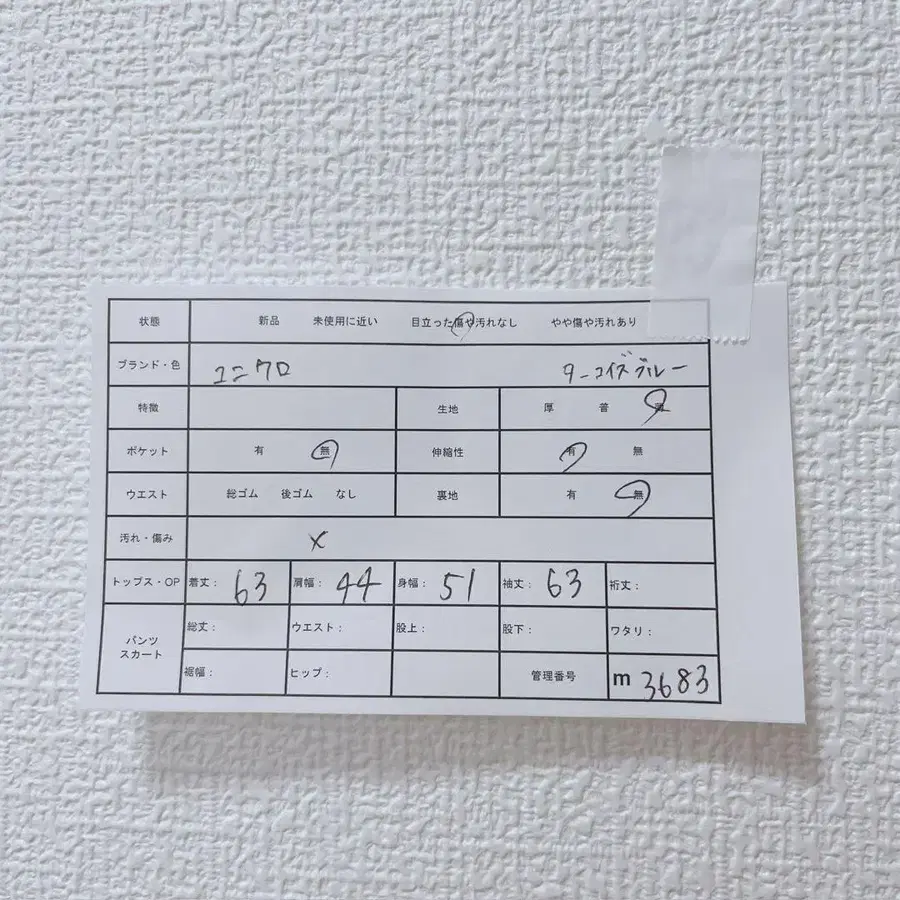 状態 新品 未使用に近い 目立った傷や汚れなし やや傷や汚れあり
ブランド・色 ユニクロ ターコイズブルー
特徴 生地 厚 普 薄
ポケット 有 無 伸縮性 有 無
ウエスト 総ゴム 後ゴム なし 裏地 有 無
汚れ・傷み ×
トップス・OP 着丈: 63 肩幅: 44 身幅: 51 袖丈: 63 裄丈:
パンツ スカート 総丈: ウエスト: 股上: 股下: ワタリ:
裾幅: ヒップ: 管理番号 m 3683